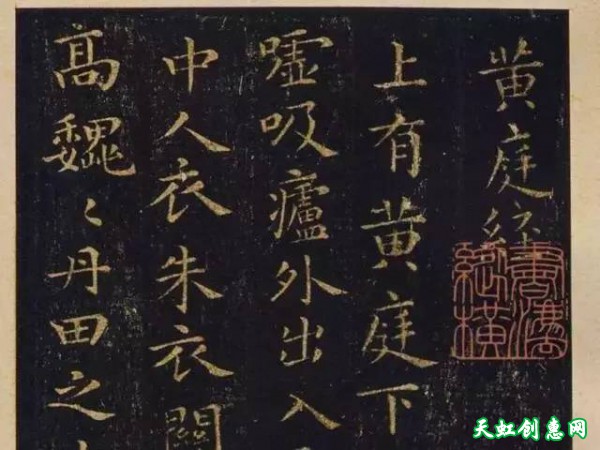 黄庭經
上有黄庭下
嘘吸廬外出入
中人衣朱衣關
髙巍〻丹田之
天虹创惠网